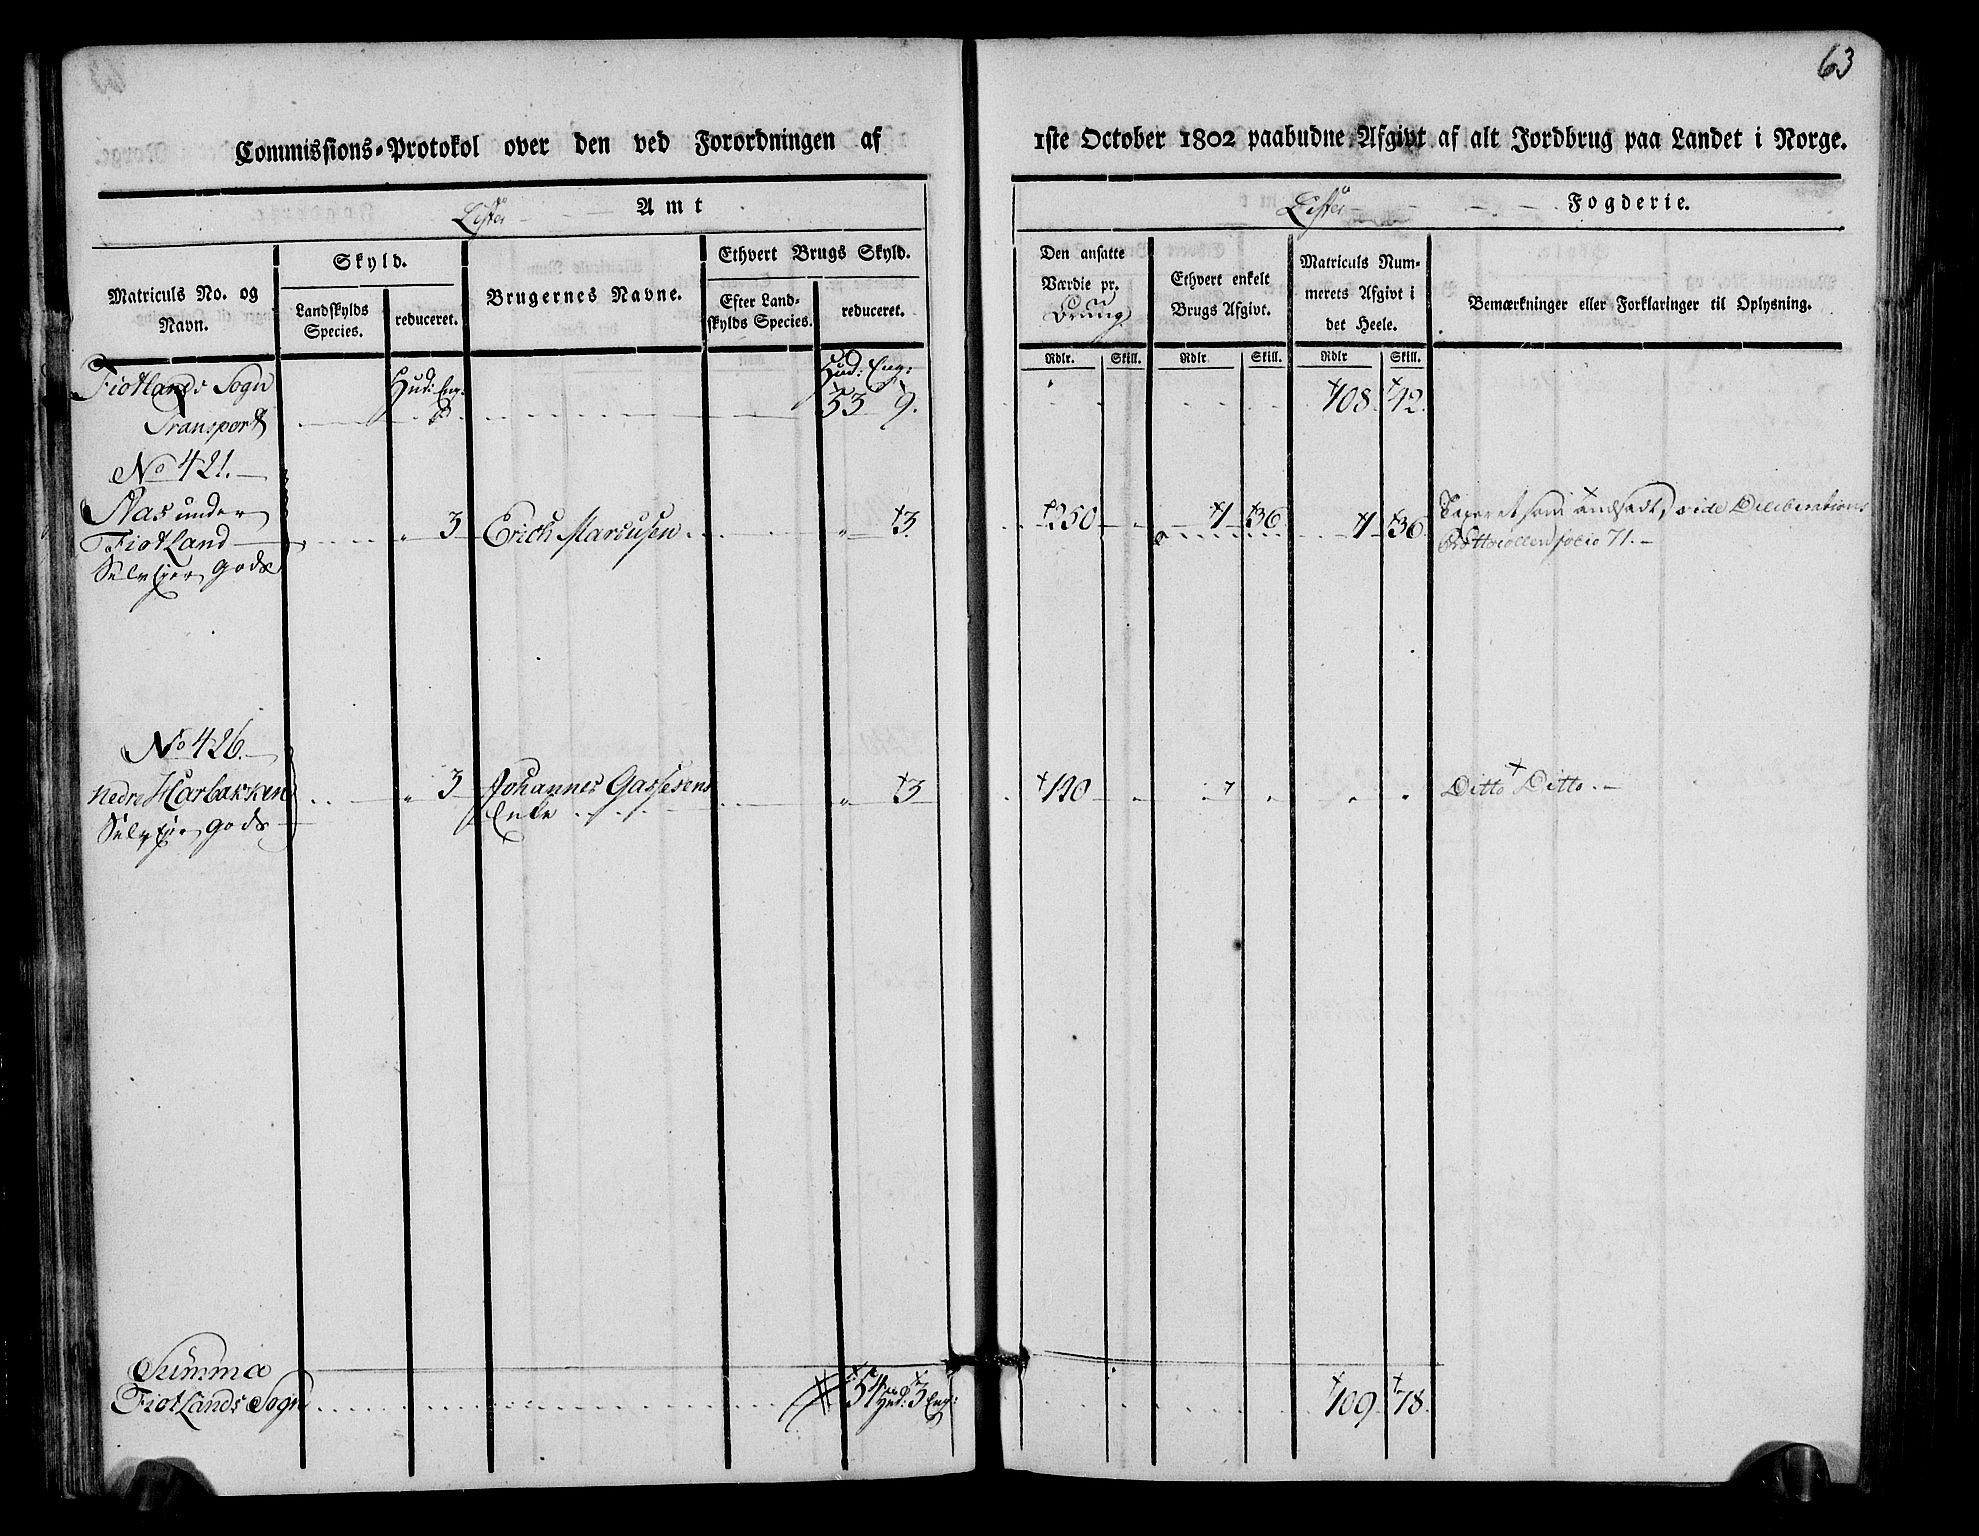 63
Commissions-Protokol over den ved Forordningen af 1ste October 1802 paabudne Afgivt af alt Jordbrug paa Landet i Norge.
Lister Amt
Lister Fogderie.
Matriculs No. og Navn.
Skyld.
Landskylds Species.
reduceret.
Brugernes Navne.
Ethvert Brugs Skyld.
Efter Landskylds Species.
reduceret.
Den ansatte Værdie pr.
Ethvert enkelt Brugs Afgivt.
Matriculs Nummerets Afgivt i det Heele.
Bemærkninger eller Forklaringer til Oplysning.
Rdlr. Skill. Rdlr Skill. Rdlr Skill.
Fiotlands Sogn Hud: Eng: Hud: Eng:
Transport 53 9. 108 42
No 421.
Naes under
Fiotland 3 Erich Marcusen " 3. 250 1 36 1 36 Taxeret som andsadt, vide Deliberations
Gods Prottocollen folio 71.
No 426.
Nedre Harbakken " 3 Johannes " 3 120 " " " " Ditto Ditto.
Gods Enke
Summa
Fiotlands Sogn 54 Hud: 3 Eng: 109 78.